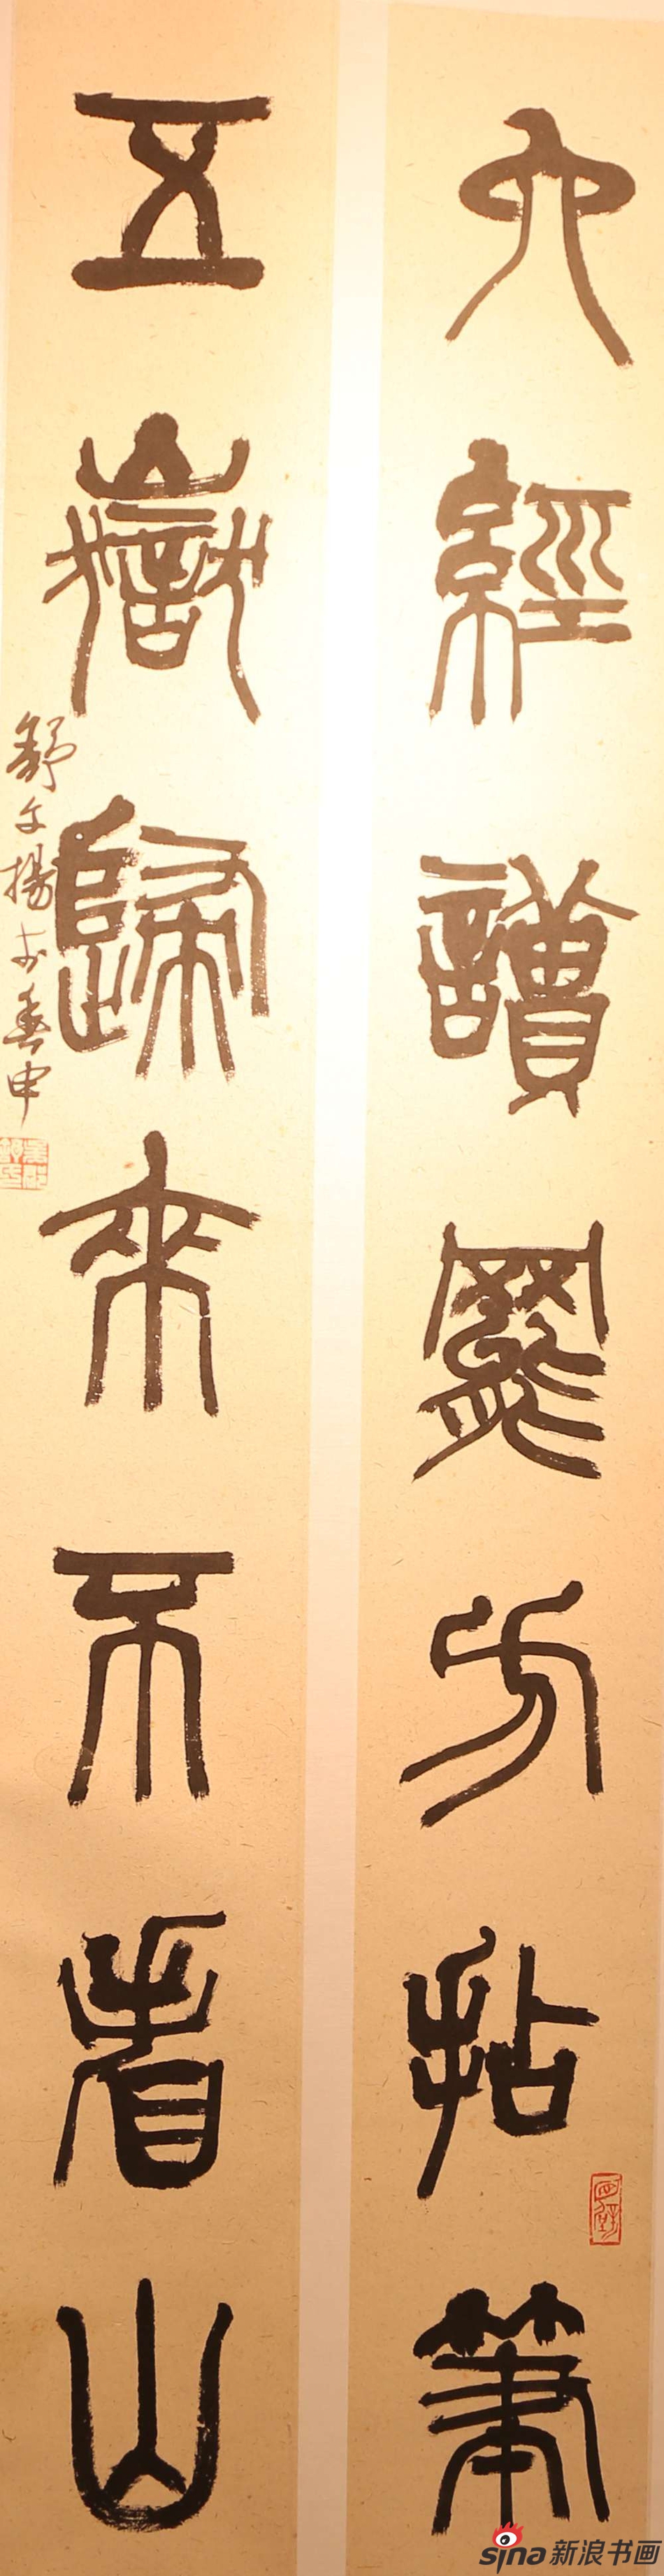 六經讀罷方拈筆
五嶽歸來不看山
舒文揚书於春申
sina新浪书画